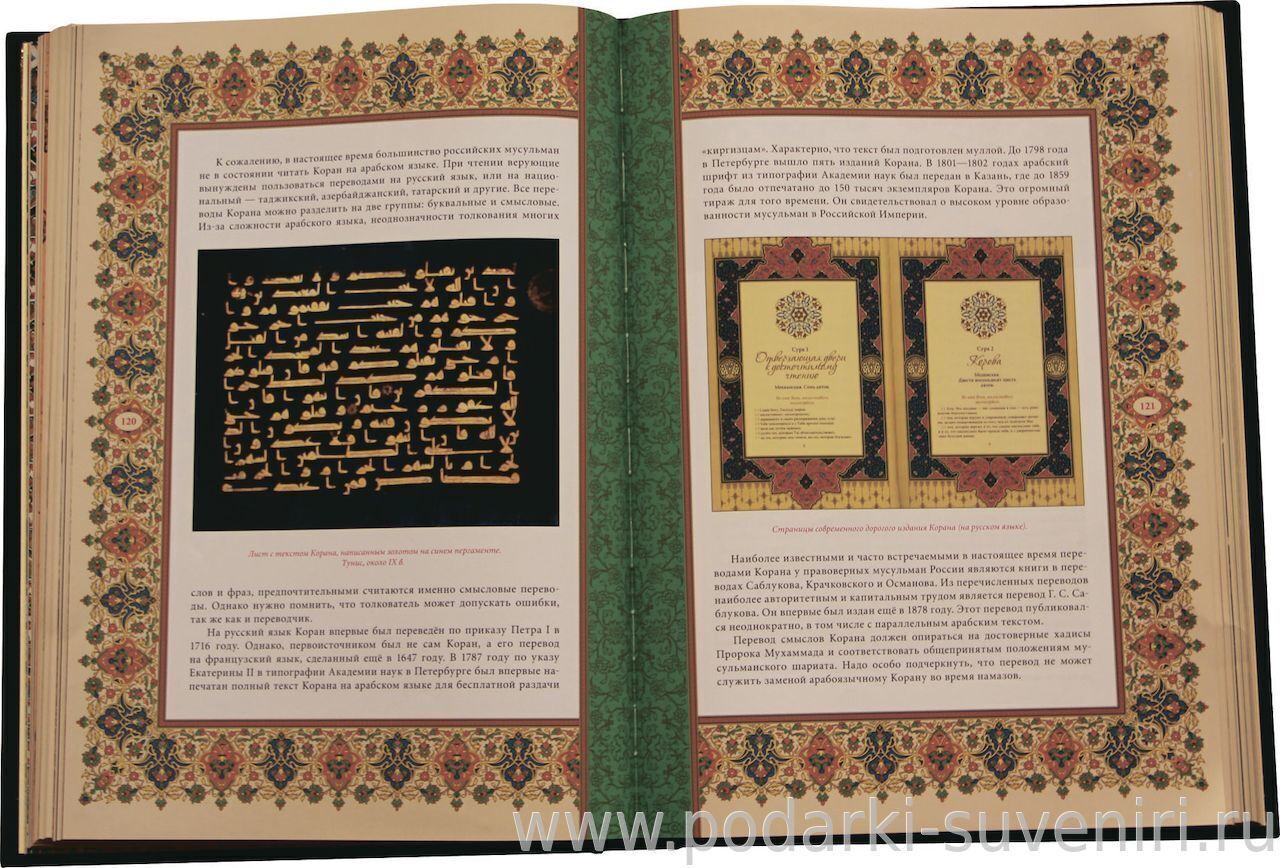 К сожалению, в настоящее время большинство российских мусульман
не в состоянии читать Коран на арабском языке. При чтении верующие
вынуждены пользоваться переводами на русский язык, или на нацио-
нальный — таджикский, азербайджанский, татарский и другие. Все пере-
воды Корана можно разделить на две группы: буквальные и смысловые.
Из-за сложности арабского языка, неоднозначности толкования многих
120
Лист с текстом Корана, написанным золотом на синем пергаменте.
Тунис, около IX в.
слов и фраз, предпочтительными считаются именно смысловые перево-
ды. Однако нужно помнить, что толкователь может допускать ошибки,
так же как и переводчик.
На русский язык Коран впервые был переведён по приказу Петра I в
1716 году. Однако, первоисточником был не сам Коран, а его перевод
на французский язык, сделанный ещё в 1647 году. В 1787 году по указу
Екатерины II в типографии Академии наук в Петербурге был впервые на-
печатан полный текст Корана на арабском языке для бесплатной раздачи
«киргизцам». Характерно, что текст был подготовлен муллой. До 1798 года
в Петербурге вышло пять изданий Корана. В 1801—1802 годах арабский
шрифт из типографии Академии наук был передан в Казань, где до 1859
года было отпечатано до 150 тысяч экземпляров Корана. Это огромный
тираж для того времени. Он свидетельствовал о высоком уровне образо-
ванности мусульман в Российской Империи.
Сура 1
Отверзающая двери
к досточтимому
чтению
Мекканская. Семь аятов.
Сура 2
Корова
Мединская.
Двести восемьдесят шесть
аятов.
121
Страницы современного дорогого издания Корана (на русском языке).
Наиболее известными и часто встречаемыми в настоящее время пере-
водами Корана у правоверных мусульман России являются книги в пере-
водах Саблукова, Крачковского и Османова. Из перечисленных переводов
наиболее авторитетным и капитальным трудом является перевод Г. С. Са-
блукова. Он впервые был издан ещё в 1878 году. Этот перевод публиковал-
ся неоднократно, в том числе с параллельным арабским текстом.
Перевод смыслов Корана должен опираться на достоверные хадисы
Пророка Мухаммада и соответствовать общепринятым положениям му-
сульманского шариата. Надо особо подчеркнуть, что перевод не может
служить заменой арабоязычному Корану во время намазов.
www.podarki-suveniri.ru